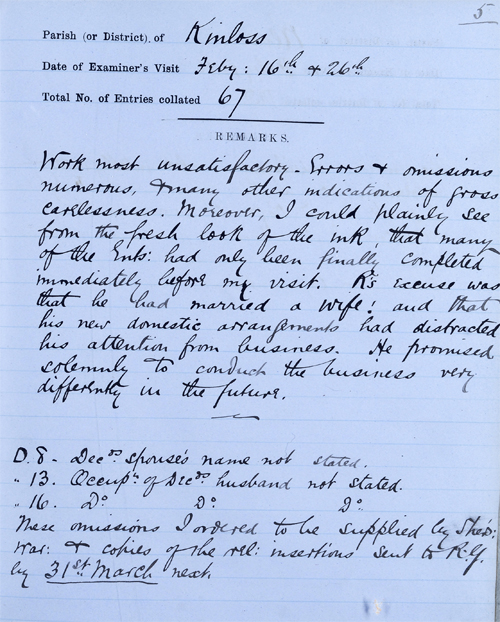 5
Parish (or District) of Kinloss
Date of Examiner's Visit Feby: 16th & 26th
Total No. of Entries collated 67
REMARKS.
Work most unsatisfactory - Errors & omissions
numerous, & many other indications of gross
carelessness. Moreover, I could plainly see
from the fresh look of the ink, that many
of the Ents: had only been finally completed
immediately before my visit. R's excuse was
that he had married a wife! and that
his new domestic arrangements had distracted
his attention from business. He promised
solemnly to conduct the business very
differently in the future.
D. 8. - Deceds spouse's name not stated.
" 13. Occupn of Deceds husband not stated.
" 16. Do Do Do
These omissions I ordered to be supplied by Sher:
War: & copies of the rel: insertions sent to R.G.
by 31st March next.